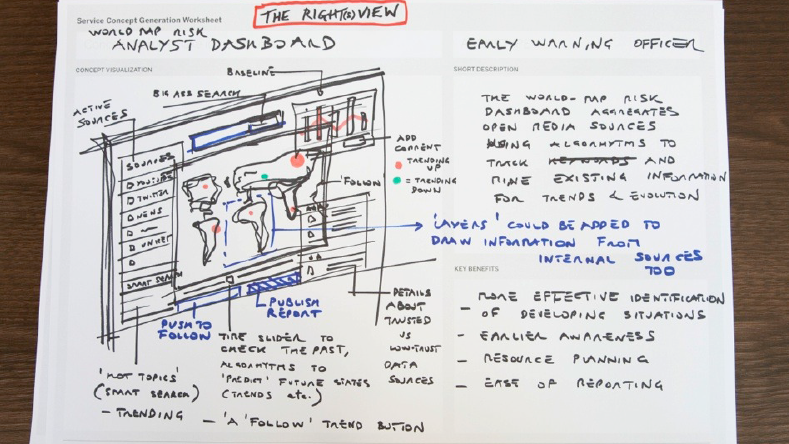 Service Concept Generation Worksheet
THE RIGHT(S) VIEW
WORLD MAP RISK
ANALYST DASHBOARD
EARLY WARNING OFFICER
CONCEPT VISUALIZATION
SHORT DESCRIPTION
BASELINE
BIG ASS SEARCH
ACTIVE
SOURCES
SOURCES
YOUTUBE
TWITTER
NEWS
SMART SEARCH
ADD
COMMENT
TRENDING
UP
= TRENDING
DOWN
'FOLLOW
THE WORLD-MAP RISK
DASHBOARD AGGREGATES
OPEN MEDIA SOURCES
USING ALGORHYTMS TO
TRACK KEYWORDS AND
MINE EXISTING INFORMATION
FOR TRENDS & EVOLUTION
'LAYERS' COULD BE ADDED TO
DRAW INFORMATION FROM
INTERNAL SOURCES
TOO
KEY BENEFITS
- MORE EFFECTIVE IDENTIFICATION
OF DEVELOPING SITUATIONS
- EARLIER AWARENESS
- RESOURCE PLANNING
- EASE OF REPORTING
PUSH TO
FOLLOW
PUBLISH
REPORT
DETAILS
ABOUT
TRUSTED
VS
LOW-TRUST
DATA
SOURCES
TIME SLIDER TO
CHECK THE PAST,
ALGORHYTMS TO
'PREDICT' FUTURE STATES
(TRENDS etc.)
'HOT TOPICS'
(SMART SEARCH)
- TRENDING
- 'A 'FOLLOW' TREND BUTTON